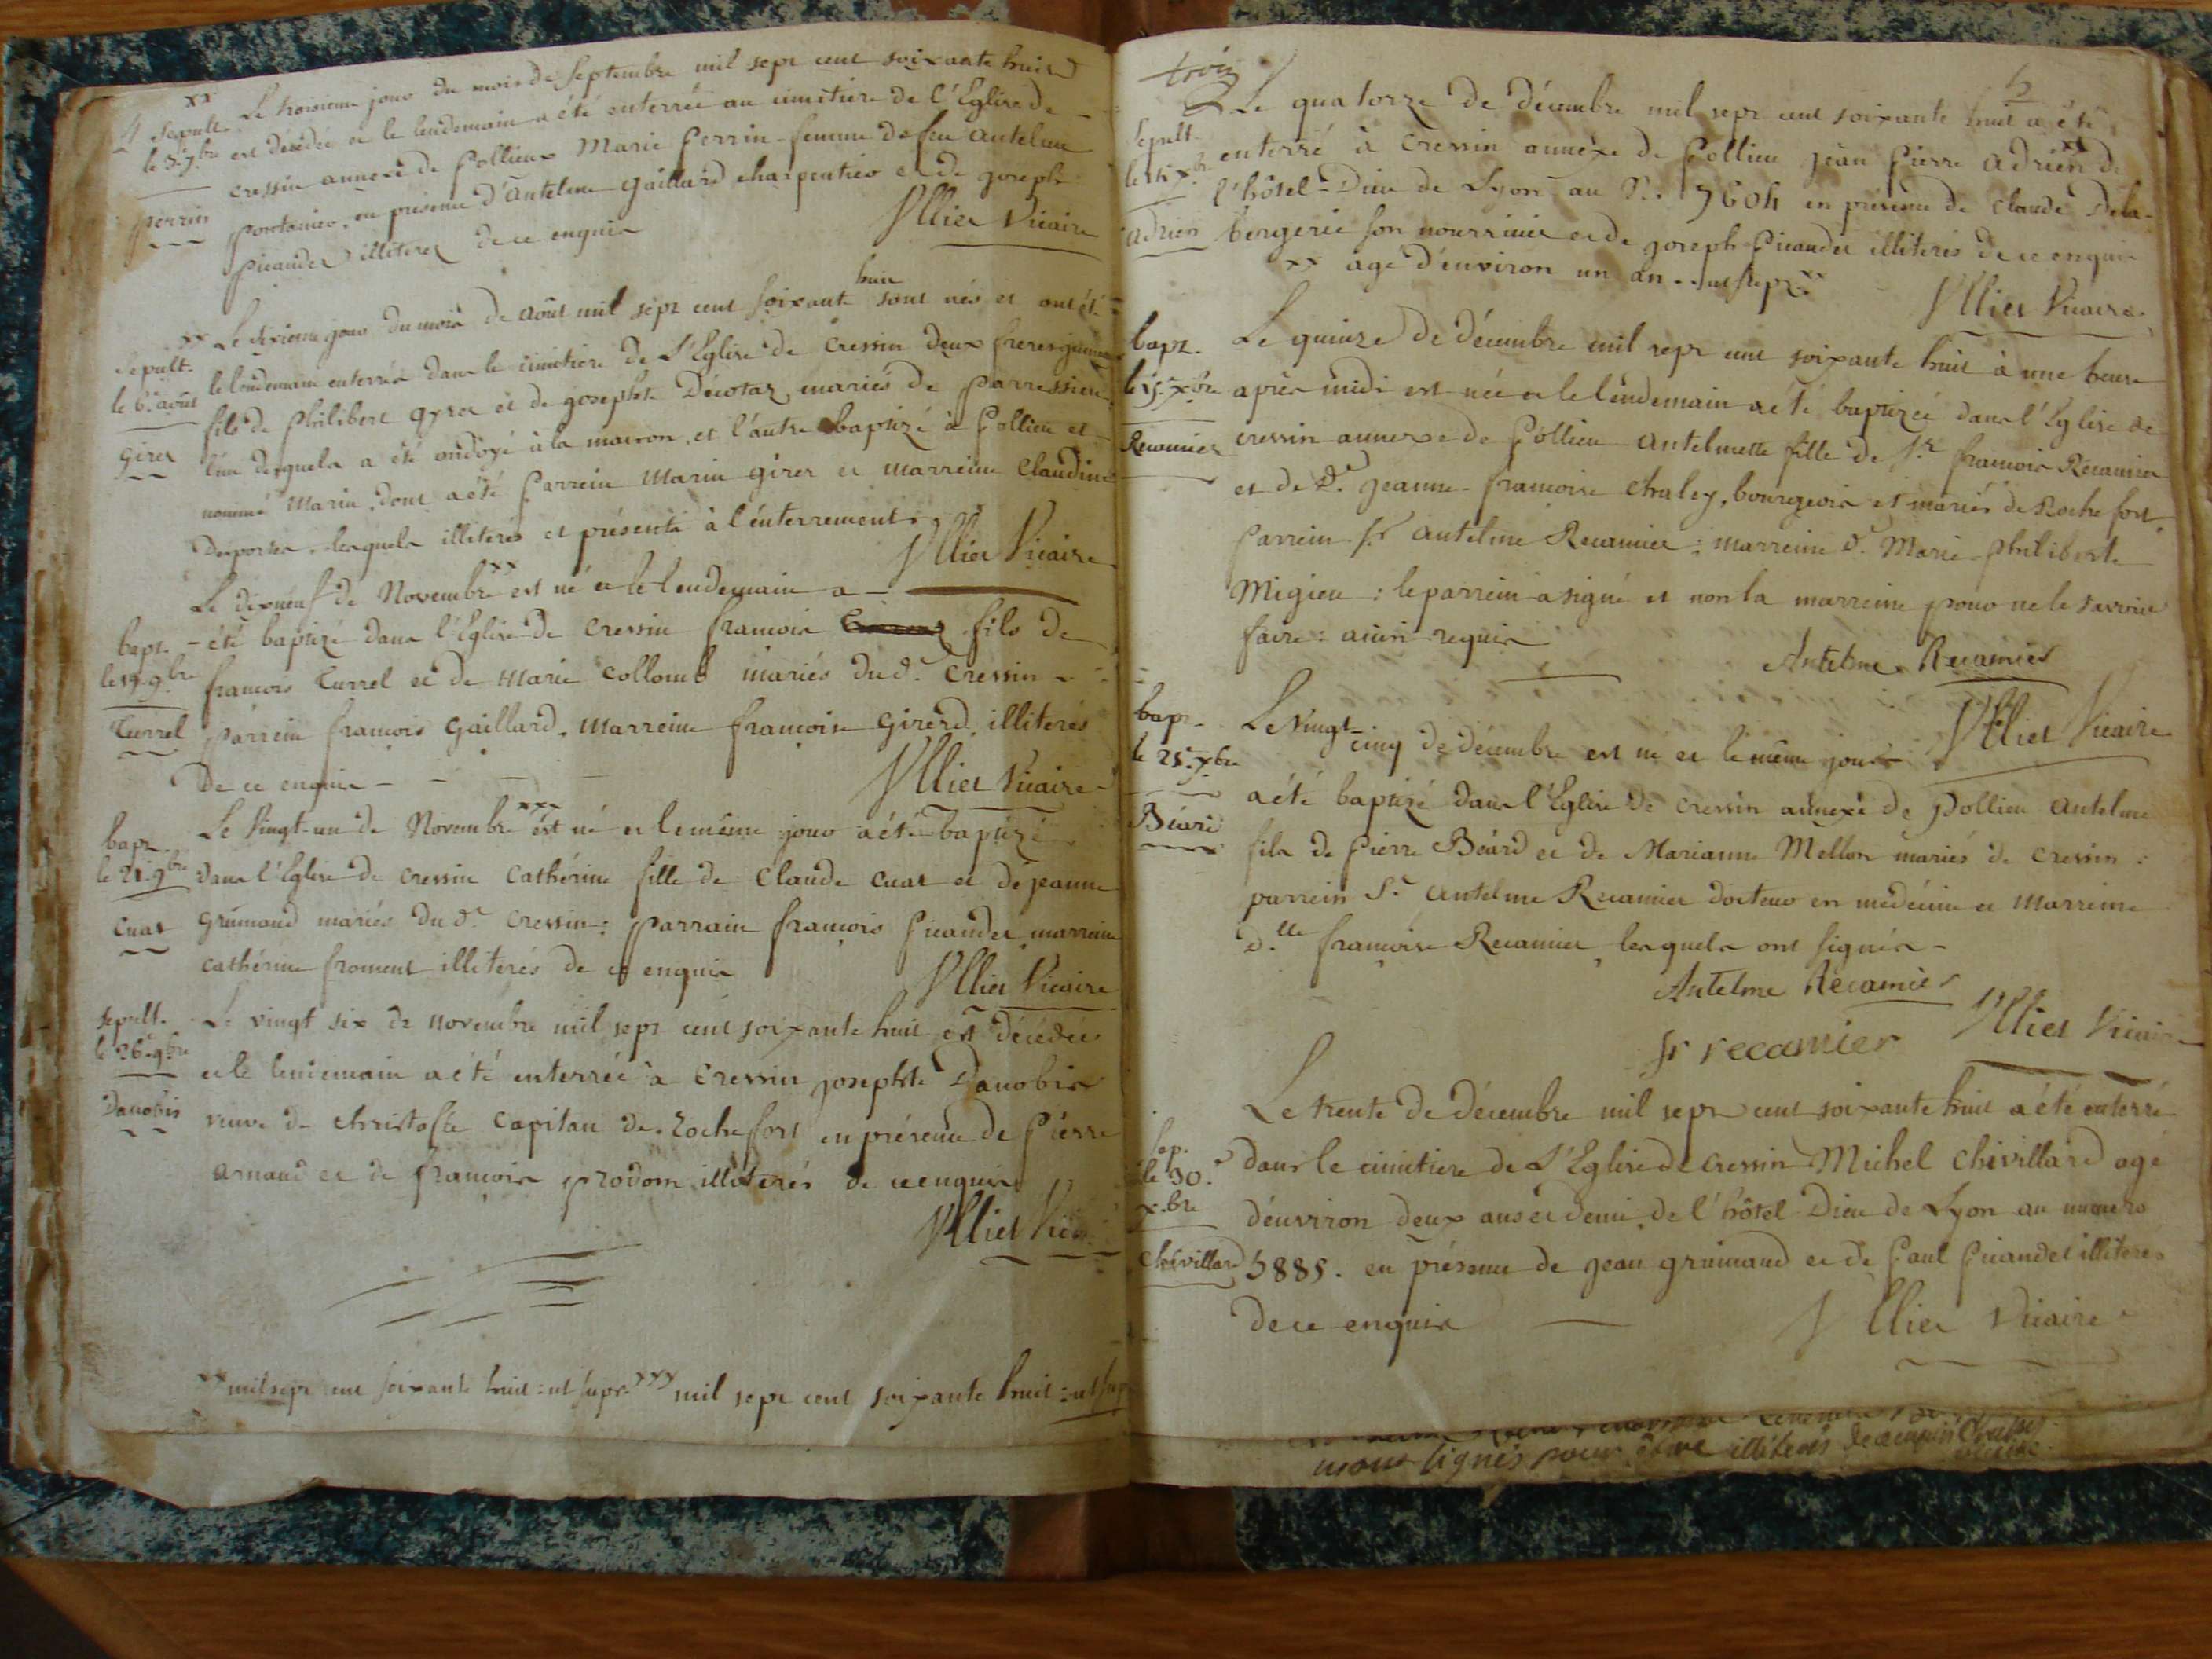 4
xx
Sepult. Le troisieme jour du mois de Septembre mil sept cent soixante huit
le 3.e 7.bre est décédée et le lendemain a été enterrée au cimitiere de l'Eglise de
cressin annexe de Pollieux Marie perrin femme de feu antelme
perrin
Pontanier, en présence d'antelme gaillard charpentier et de joseph
picandet illiterez de ce enquis
Ulliet Vicaire
xx Le sixieme jour du mois de août mil sept cent soixante huit sont nés et ont été
Sepult.
le 6.e août le lendemain enterrés dans le cimitiere de L'Eglise de Cressin deux freres jumeaux
fils de philibert gyrer et de josephte Décotaz mariés de parressieu
girer l'un desquels a été ondoyé à la maison, et l'autre baptizé à Pollieu et
nommé Marin, dont a été Parrein Marin girer et marreine Claudine
Desportes, lesquels illiterés et présents à l'enterrement.
Ulliet Vicaire
Le dixneuf de Novembre xx est né et le lendemain a
bapt. - été baptizé dans l'Eglise de cressin francois fils de
le 19. 9.bre francois Turrel et de Marie Collomb mariés dud.t Cressin
Turrel parrein francois gaillard, marreine francoise girerd, illiterés
de ce enquis
Ulliet Vicaire
bapt. Le Vingt-un de Novembre xxx est né et le même jour a été baptizé
le 21. 9.bre dans l'Eglise de cressin Cathérine fille de Claude cuat et de jeanne
cuat grumaud mariés du d.t Cressin: parrain francois picandet marreine
cathérine froment illiterés de ce enquis
Ulliet Vicaire
sepult. Le vingt six de novembre mil sept cent soixante huit est décédée
le 26. 9.bre et le lendemain a été enterrée à Cressin josephte Danobis
Danobis veuve de christofle Capitan de Rochefort en présence de Pierre
arnaud et de francois prodom illiterés de ce enquis
Ulliet Vicaire
xx mil sept cent soixante huit: ut supr. xxx mil sept cent soixante huit: ut sup
trois
5
Le quatorze de décembre mil sept cent soixante huit a été
Sepult. enterré à cressin annexe de Pollieu jean Pierre adrien xx de
le 14 x.bre l'hôtel-Dieu de Lyon au N.o 7604 en présence de Claude Dela-
adrien bergerie son nourricier et de joseph Picandet illiterés de ce enquis
xx agé d'environ un an. ut supr. xx
Ulliet Vicaire
bapt. Le quinze de décembre mil sept cent soixante huit à une heure
le 15. x.bre après midi est née et le lendemain a été baptizée dans l'Eglise de
Recamier cressin annexe de Pollieu antelmette fille de S.r francois Recamier
et de d.e jeanne-francoise Chaley, bourgeois et mariés de Rochefort
Parrein S.r antelme Recamier: marreine d.e Marie-philiberte
Migieu: le parrein a signé et non la marreine pour ne le savoir
faire: ainsi requis
Antelme Recamier
Ulliet Vicaire
bapt. Le Vingt-cinq de décembre est né et le même jour
le 25. x.bre a été baptizé dans l'Eglise de cressin annexe de Pollieu antelme
Béard fils de Pierre Béard et de Marianne Mellon mariés de cressin:
parrein S.r antelme Recamier docteur en médécine et Marreine
d.lle francoise Recamier lesquels ont signés
Antelme Récamier
fr recamier Ulliet Vicaire
Le trente de décembre mil sept cent soixante huit a été enterré
sep. dans le cimitiere de L'Eglise de cressin Michel Chévillard agé
le 30.e x.bre d'environ deux ans et demi, de l'hôtel-Dieu de Lyon au numero
Chévillard 5885. en présence de jean grumaud et de Paul Picandet illiterés
de ce enquis
Ulliet Vicaire
signés pour être illiterés de ce enquis